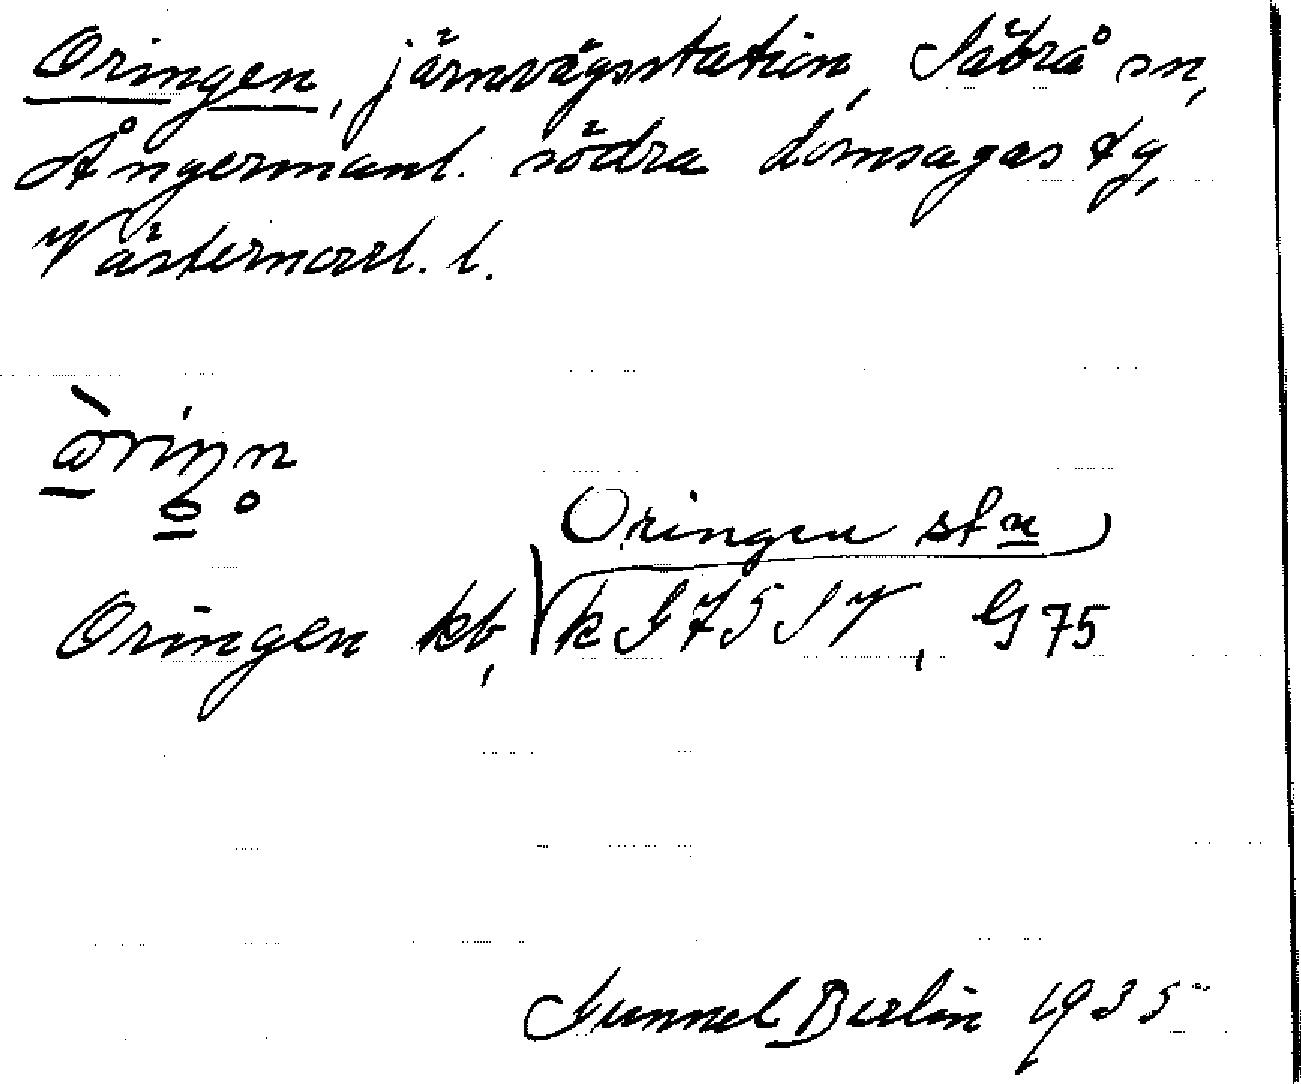 Oringen, järnvägsstation, Säbrå sn,
Ångermanl. södra domsagas tg,
Västernorrl. l.
Oringen stn
Oringen kb, k G75 SV, G75
Gunnel Berlin 1935